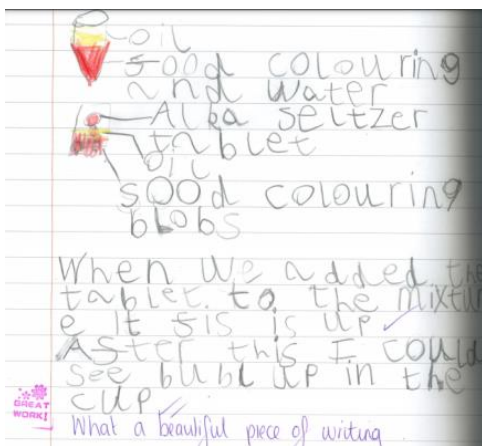 oil
food colouring
and water
Alka seltzer
tablet
oil
food colouring
blobs
When we added the
tablet. to the mixtur
e it fis is up
After this I could
see bubl up in the
cup
GREAT
WORK!
What a beautiful piece of writing